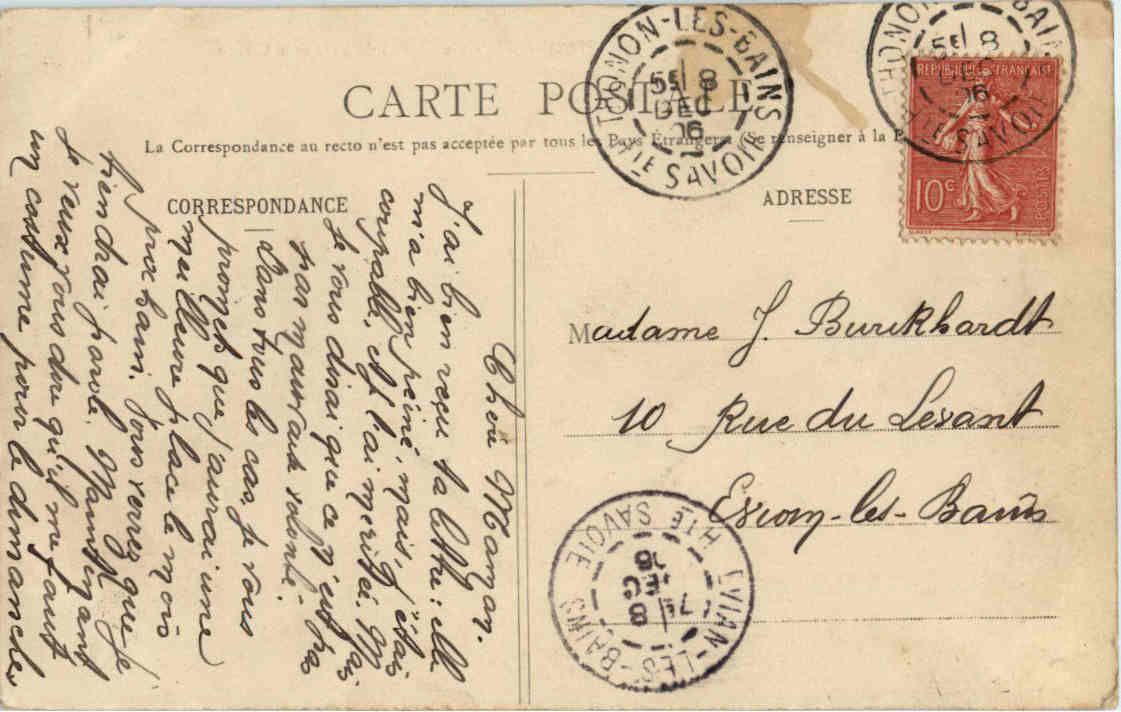 CARTE POSTALE
La Correspondance au recto n'est pas acceptée par tous les Pays Étrangers (Se renseigner à la
CORRESPONDANCE
ADRESSE
THONON-LES-BAINS
5E 8
DEC
06
HTE SAVOIE
THONON-LES-BAINS
5E 8
DEC
06
HTE SAVOIE
REPUBLIQUE FRANÇAISE
10c
POSTES
Chère Maman.
J'ai bien reçu ta lettre: elle
m'a bien peiné, mais, j'étais
coupable, et l'ai méritée. Mais
je vous disai que ce n'est pas
par mauvaise volonté.
Dans tous les cas, je vous
promets que j'aurai une
meilleure place le mois
prochain. Vous verrez que je
tiendrai parole. Maintenant
je veux vous dire qu'il me faut
un costume pour le dimanche
Madame J. Burckhardt
10 Rue du Levant
Evian-les-Bains
EVIAN-LES-BAINS
7E 8
DEC
HTE SAVOIE